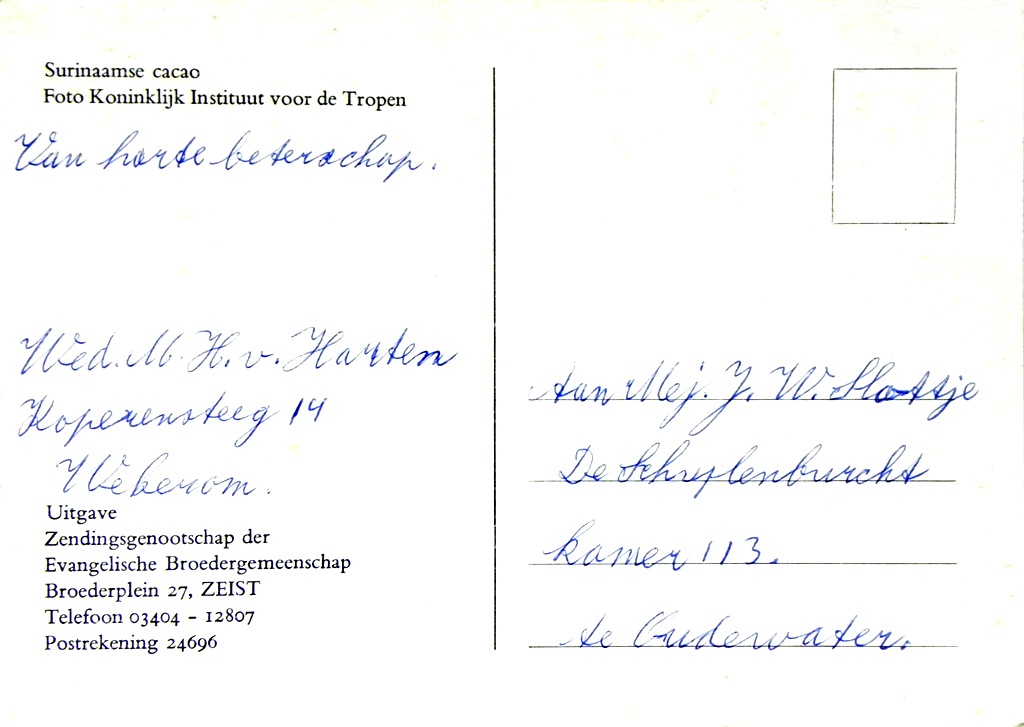 Surinaamse cacao
Foto Koninklijk Instituut voor de Tropen
Van harte beterschap.
Wed. M. H. v. Hartem
Koperensteeg 14
Wekerom.
Uitgave
Zendingsgenootschap der
Evangelische Broedergemeenschap
Broederplein 27, ZEIST
Telefoon 03404 - 12807
Postrekening 24696
Aan Mej. J. W. Slottje
De Schuylenburcht
kamer 113.
te Oudewater.